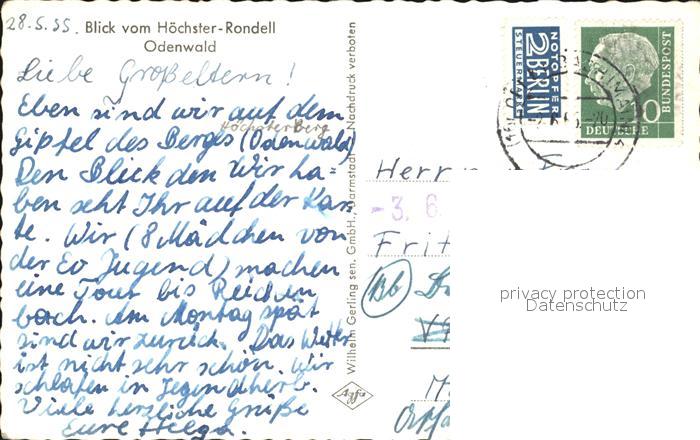 28.5.55.
Blick vom Höchster-Rondell
Odenwald
Liebe Großeltern!
Eben sind wir auf dem
Gipfel des Berges (Odenwald)
Höchsterberg
Den Blick den Wir ha=
ben seht Ihr auf der Kar=
te. Wir (8 Mädchen von
der Ev Jugend) machen
eine Tour bis Reichen
bach. Am Montag spät
sind wir zurück. Das Wetter
ist nicht sehr schön. Wir
schlafen in Jegendherb.
Viele herzliche Grüße
Eure Helga.
Wilhelm Gerling sen. GmbH., Darmstadt Nachdruck verboten
Agfa
NOTOPFER
2 BERLIN
STEUERMARKE
DEUTSCHE
BUNDESPOST
Herr
- 3. 6.
Frit
Bb
privacy protection
Datenschutz